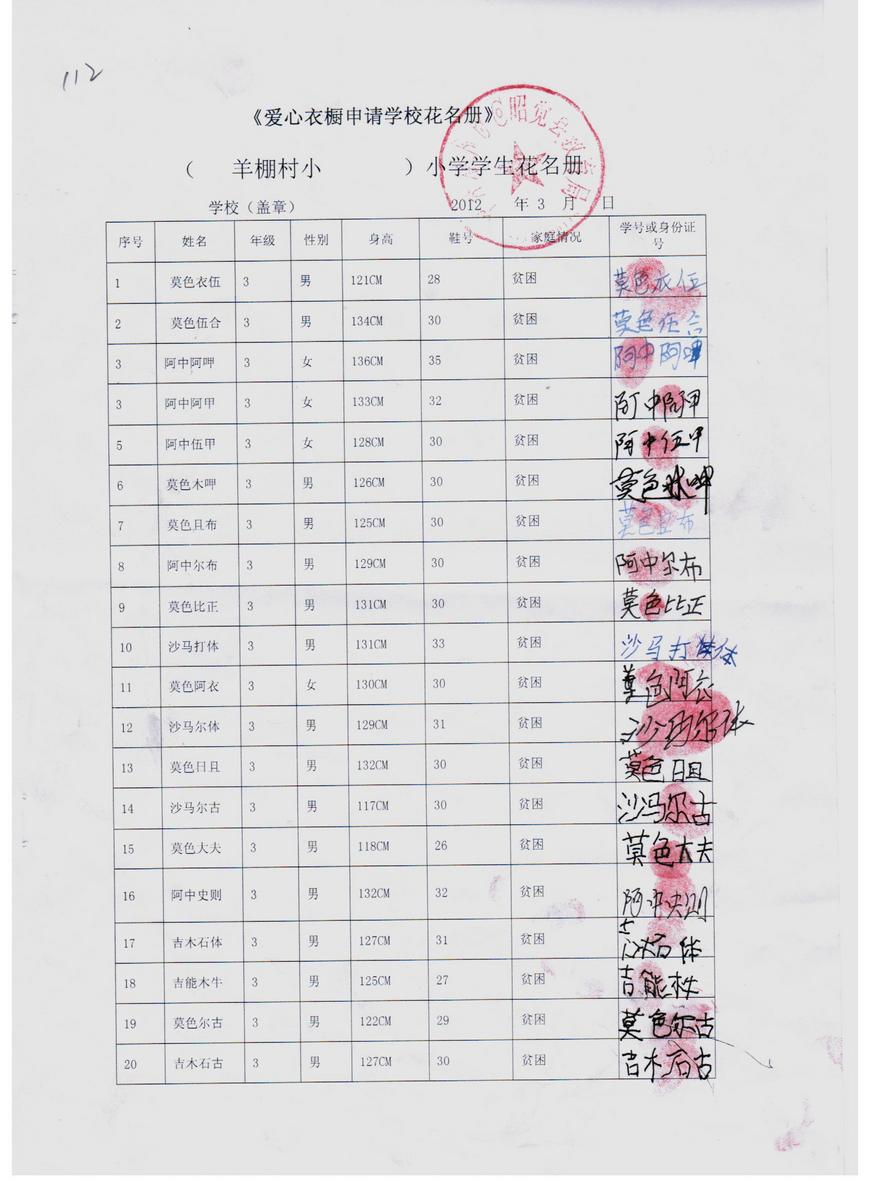 112
《爱心衣橱申请学校花名册》
（ 羊棚村小 ）小学学生花名册
@昭觉县教育局
学校（盖章） 2012 年 3 月 日
序号 姓名 年级 性别 身高 鞋号 家庭情况 学号或身份证号
1 莫色衣伍 3 男 121CM 28 贫困 莫色衣伍
2 莫色伍合 3 男 134CM 30 贫困 莫色伍合
3 阿中阿呷 3 女 136CM 35 贫困 阿中阿呷
3 阿中阿甲 3 女 133CM 32 贫困 阿中阿甲
5 阿中伍甲 3 女 128CM 30 贫困 阿中伍甲
6 莫色木呷 3 男 126CM 30 贫困 莫色木呷
7 莫色且布 3 男 125CM 30 贫困 莫色且布
8 阿中尔布 3 男 129CM 30 贫困 阿中尔布
9 莫色比正 3 男 131CM 30 贫困 莫色比正
10 沙马打体 3 男 131CM 33 贫困 沙马打体
11 莫色阿衣 3 女 130CM 30 贫困 莫色阿衣
12 沙马尔体 3 男 129CM 31 贫困 沙马尔体
13 莫色日且 3 男 132CM 30 贫困 莫色日且
14 沙马尔古 3 男 117CM 30 贫困 沙冯尔古
15 莫色大夫 3 男 118CM 26 贫困 莫色大夫
16 阿中史则 3 男 132CM 32 贫困 阿中史则
17 吉木石体 3 男 127CM 31 贫困 石体
18 吉能木牛 3 男 125CM 27 贫困 吉能木牛
19 莫色尔古 3 男 122CM 29 贫困 莫色尔古
20 吉木石古 3 男 127CM 30 贫困 吉木石古